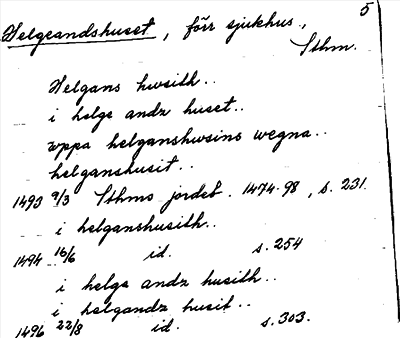 5
Helgeandshuset, förr sjukhus,
Sthm.
Helgans hwsith..
i helge andz huset..
uppa helganshwsins wegna..
helganshusit..
1493 9/3 Sthms jordeb. 1474-98, s. 231.
i helganshusith..
1494 16/6 id. s. 254
i helge andz husith..
i helgandz husit..
1496 22/8 id. s. 303.